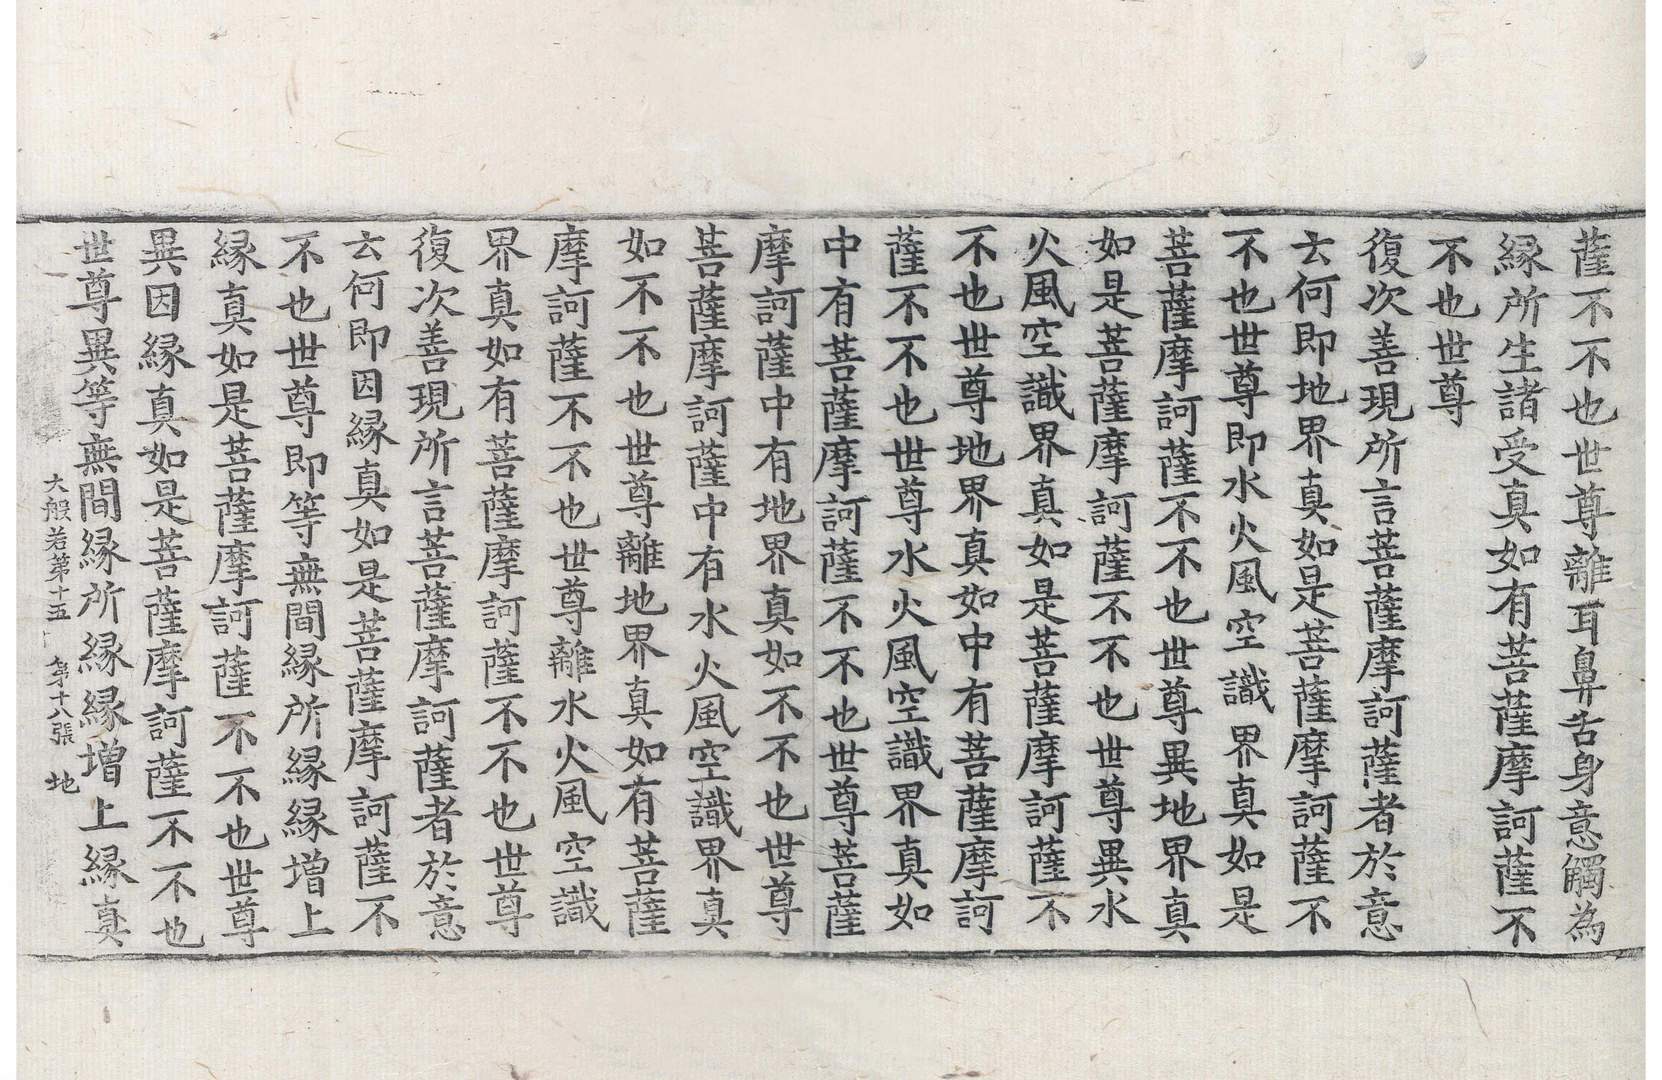 薩不不也世尊離耳鼻舌身意觸為
縁所生諸受真如有菩薩摩訶薩不
不也世尊
復次善現所言菩薩摩訶薩者於意
云何即地界真如是菩薩摩訶薩不
不也世尊即水火風空識界真如是
菩薩摩訶薩不不也世尊異地界真
如是菩薩摩訶薩不不也世尊異水
火風空識界真如是菩薩摩訶薩不
不也世尊地界真如中有菩薩摩訶
薩不不也世尊水火風空識界真如
中有菩薩摩訶薩不不也世尊菩薩
摩訶薩中有地界真如不不也世尊
菩薩摩訶薩中有水火風空識界真
如不不也世尊離地界真如有菩薩
摩訶薩不不也世尊離水火風空識
界真如有菩薩摩訶薩不不也世尊
復次善現所言菩薩摩訶薩者於意
云何即因縁真如是菩薩摩訶薩不
不也世尊即等無間縁所縁縁増上
縁真如是菩薩摩訶薩不不也世尊
異因縁真如是菩薩摩訶薩不不也
世尊異等無間縁所縁縁増上縁真
大般若第十五 第十八張 地